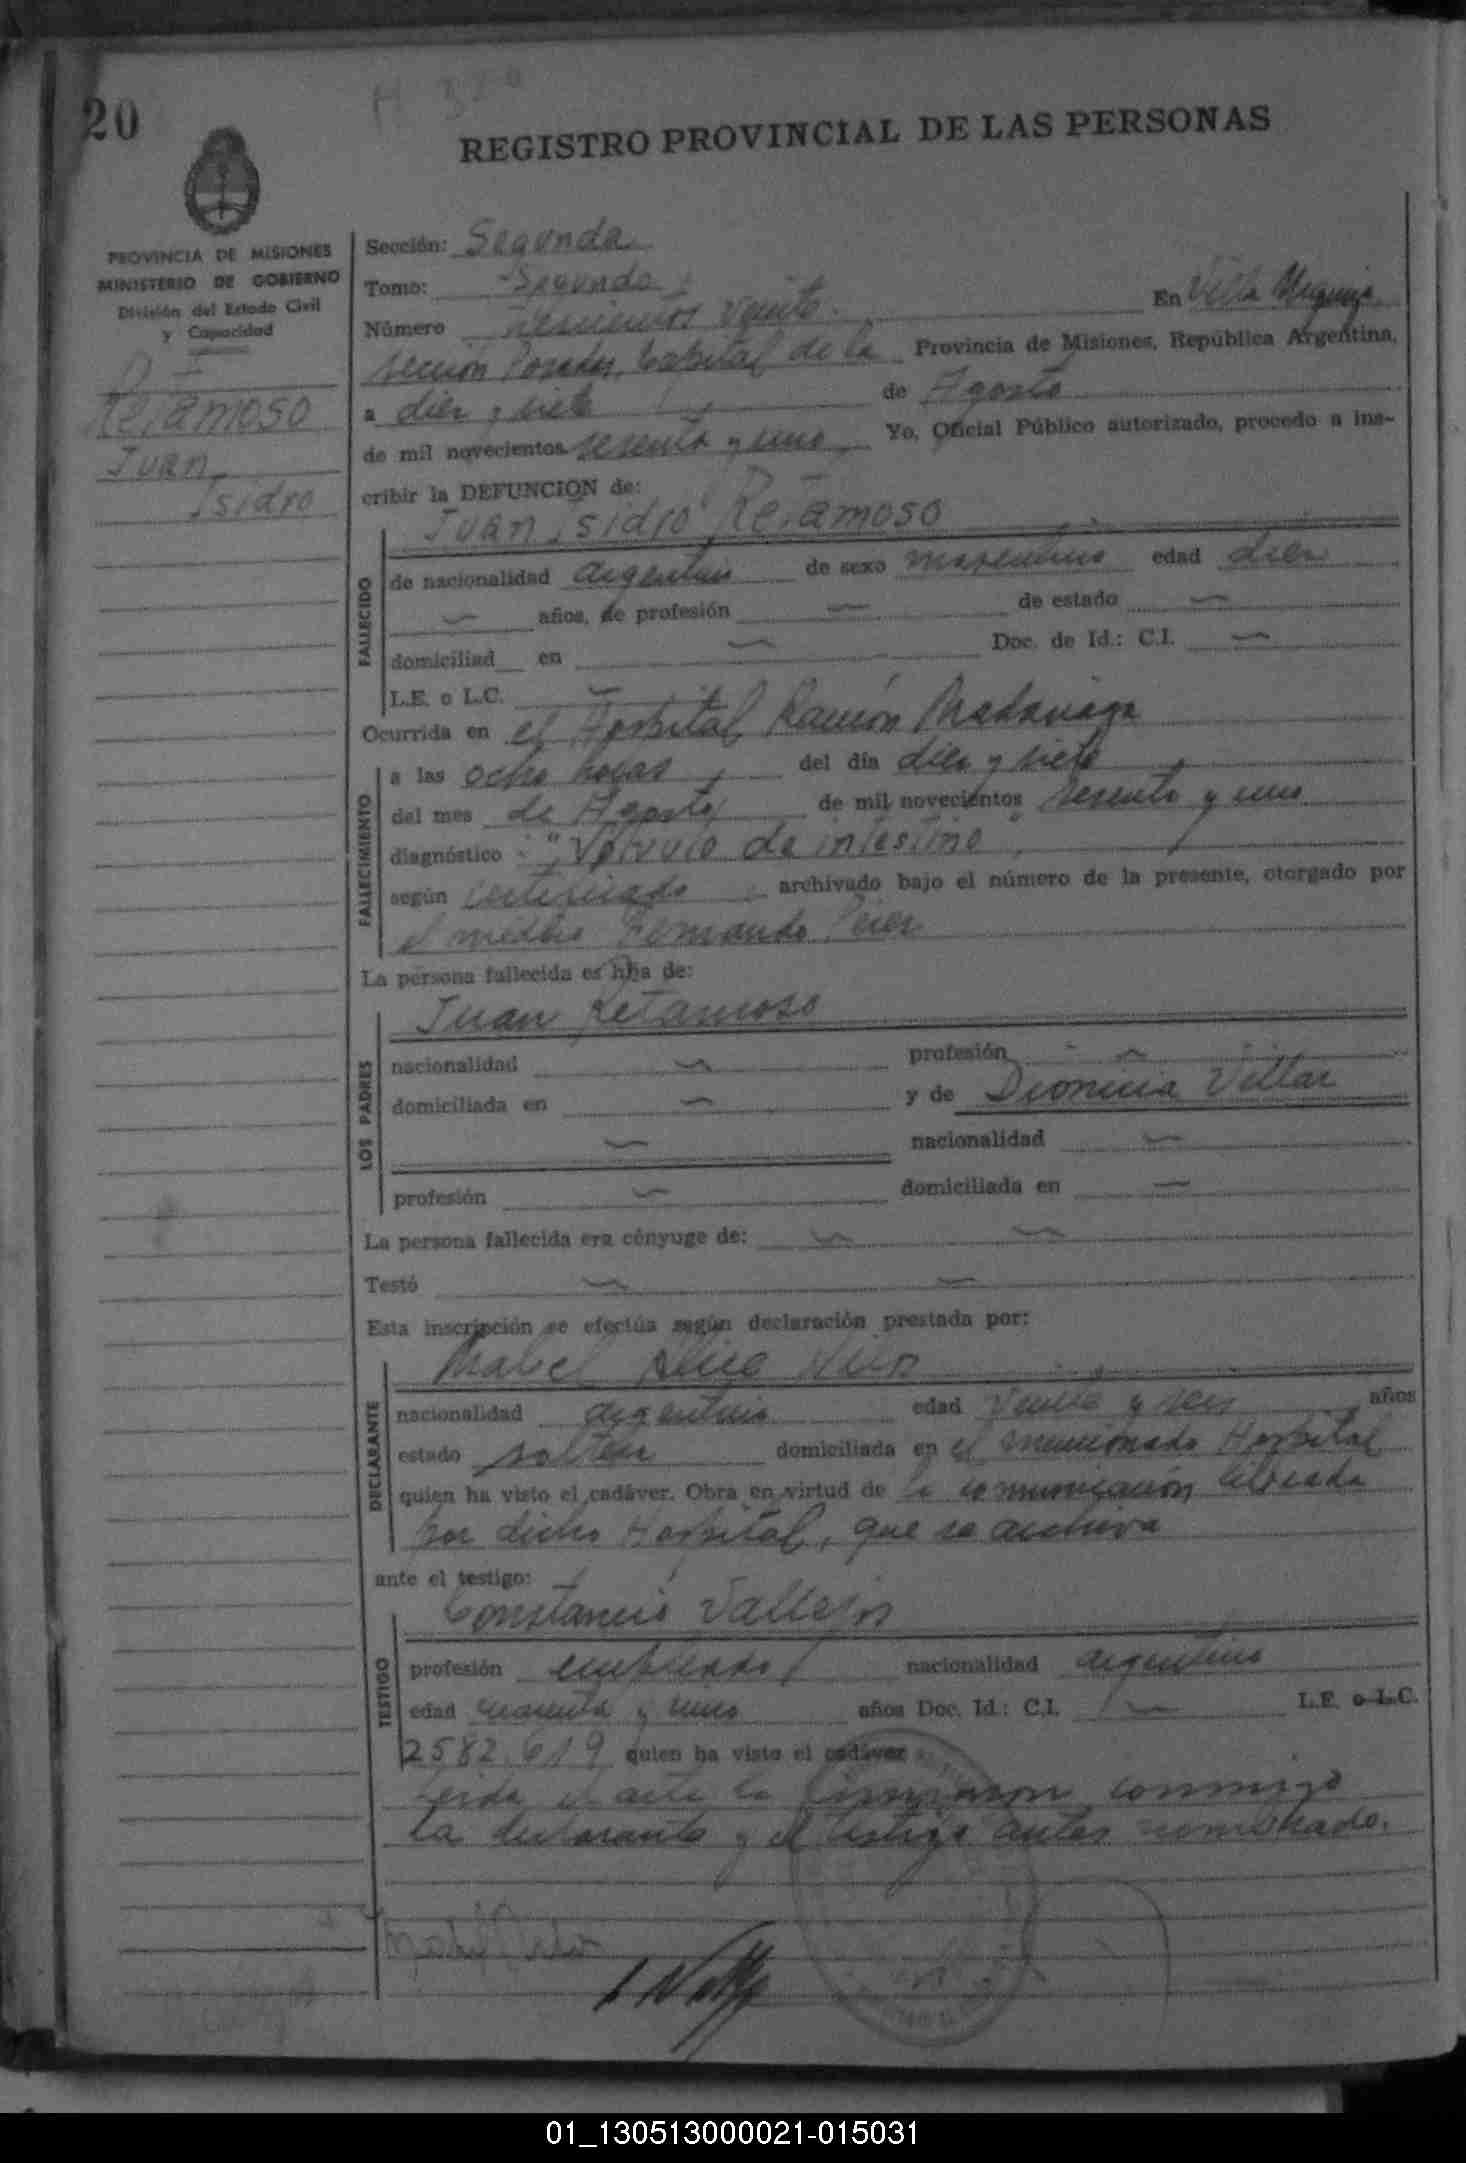 20
REGISTRO PROVINCIAL DE LAS PERSONAS
PROVINCIA DE MISIONES
MINISTERIO DE GOBIERNO
División del Estado Civil
y Capacidad
Retamoso
Juan
Isidro
Sección: Segunda
Tomo: Segundo
Número veinte. En Villa Urquiza
sección Posadas, Capital de la Provincia de Misiones, República Argentina,
a diez y siete de Agosto
de mil novecientos sesenta y uno, Yo, Oficial Público autorizado, procedo a ins-
cribir la DEFUNCION de:
Juan Isidro Retamoso
FALLECIDO
de nacionalidad argentino de sexo masculino edad diez
años, de profesión de estado
domiciliad en Doc. de Id.: C.I.
L.E. o L.C.
Ocurrida en el Hospital Ramón Madariaga
FALLECIMIENTO
a las ocho horas, del día diez y siete
del mes de Agosto de mil novecientos sesenta y uno
diagnóstico "Volvulo de intestino"
según certificado archivado bajo el número de la presente, otorgado por
el médico Fernando
La persona fallecida es hija de:
Juan Retamoso
LOS PADRES
nacionalidad profesión
domiciliada en y de Dionicia Villar
nacionalidad
profesión domiciliada en
La persona fallecida era cónyuge de:
Testó
Esta inscripción se efectúa según declaración prestada por:
Mabel
DECLARANTE
nacionalidad argentina edad veinte y seis años
estado soltera domiciliada en el mencionado Hospital
quien ha visto el cadáver. Obra en virtud de la comunicación librada
por dicho Hospital, que se archiva
ante el testigo:
Constancio Vallejos
TESTIGO
profesión empleado nacionalidad argentino
edad cuarenta y uno años Doc. Id.: C.I. L.E. o L.C.
2582.619 quien ha visto el cadáver
Leida el acta la conmigo
la declarante y el testigo antes nombrado.
01_130513000021-015031